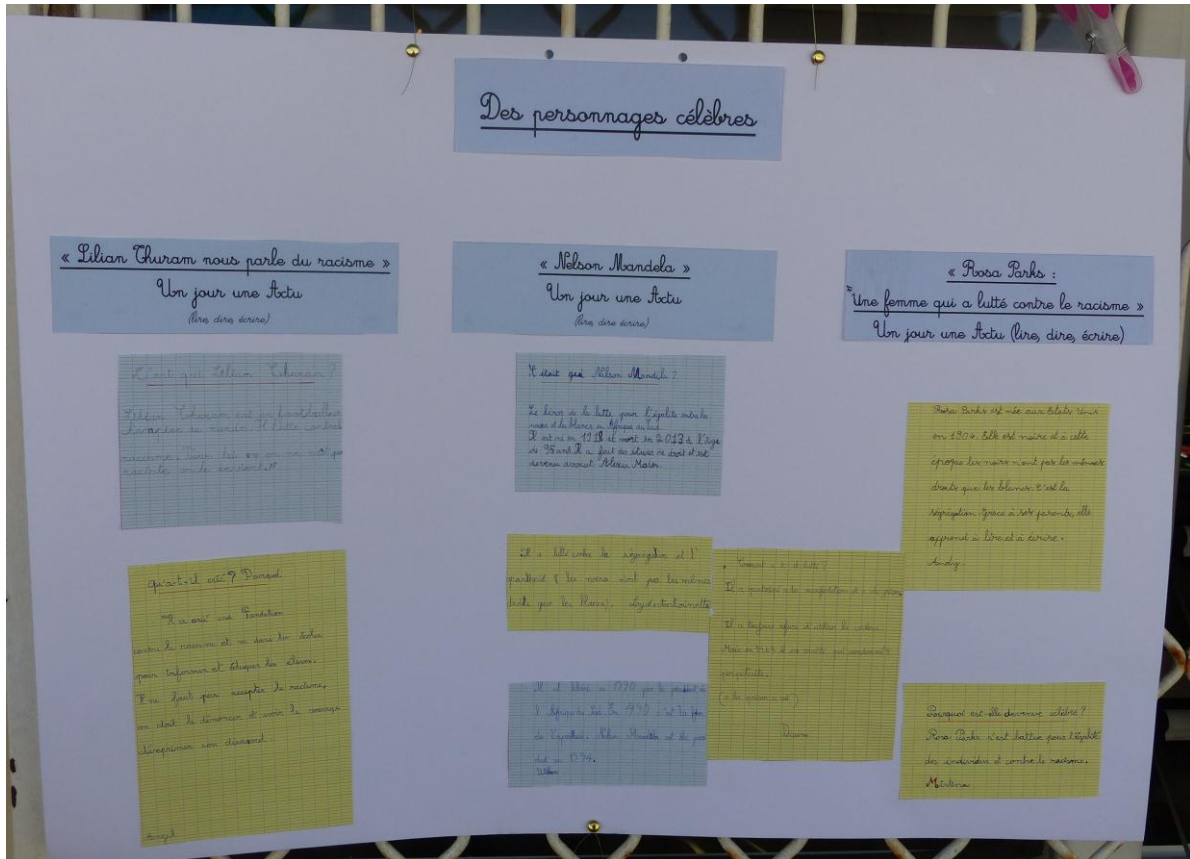 Des personnages célèbres
« Lilian Thuram nous parle du racisme »
Un jour une Actu
(lire, dire, écrire)
C'est qui Lilian Thuram ?
Lilian Thuram est un footballeur
champion du monde. Il lutte contre
racisme.
raciste on le devient."
Qu'a-t-il créé ? Pourquoi
Il a créé une Fondation
contre le racisme et va dans les écoles
pour informer et éduquer les élèves.
Il ne faut pas accepter le racisme,
on doit le dénoncer et avoir le courage
d'exprimer son désaccord
« Nelson Mandela »
Un jour une Actu
(lire, dire, écrire)
C'était qui Nelson Mandela ?
Le héros de la lutte pour l'égalité entre les
noirs et les blancs en Afrique du Sud.
Il est né en 1918 et mort en 2013 à l'âge
de 95 ans. Il a fait des études de droit et est
devenu avocat.
Il a lutté contre la ségrégation et l'
apartheid ( les noirs n'ont pas les mêmes
droits que les blancs).
Comment a-t-il lutté ?
Il a participé à la
Il a toujours refusé d'utiliser la violence
Mais en
perpétuelle.
Il est libéré en 1990 par le président de
l'Afrique du Sud. En
de l'apartheid. Nelson Mandela est élu prési
dent en 1994.
« Rosa Parks :
Une femme qui a lutté contre le racisme »
Un jour une Actu (lire, dire, écrire)
Rosa Parks est née aux Etats Unis
en 1904. Elle est noire et à cette
époque les noirs n'ont pas les mêmes
droits que les blancs. C'est la
ségrégation. Grâce à ses parents, elle
apprend à lire et à écrire.
Pourquoi est-elle devenue célèbre ?
Rosa Parks s'est battue pour l'égalité
des individus et contre le racisme.